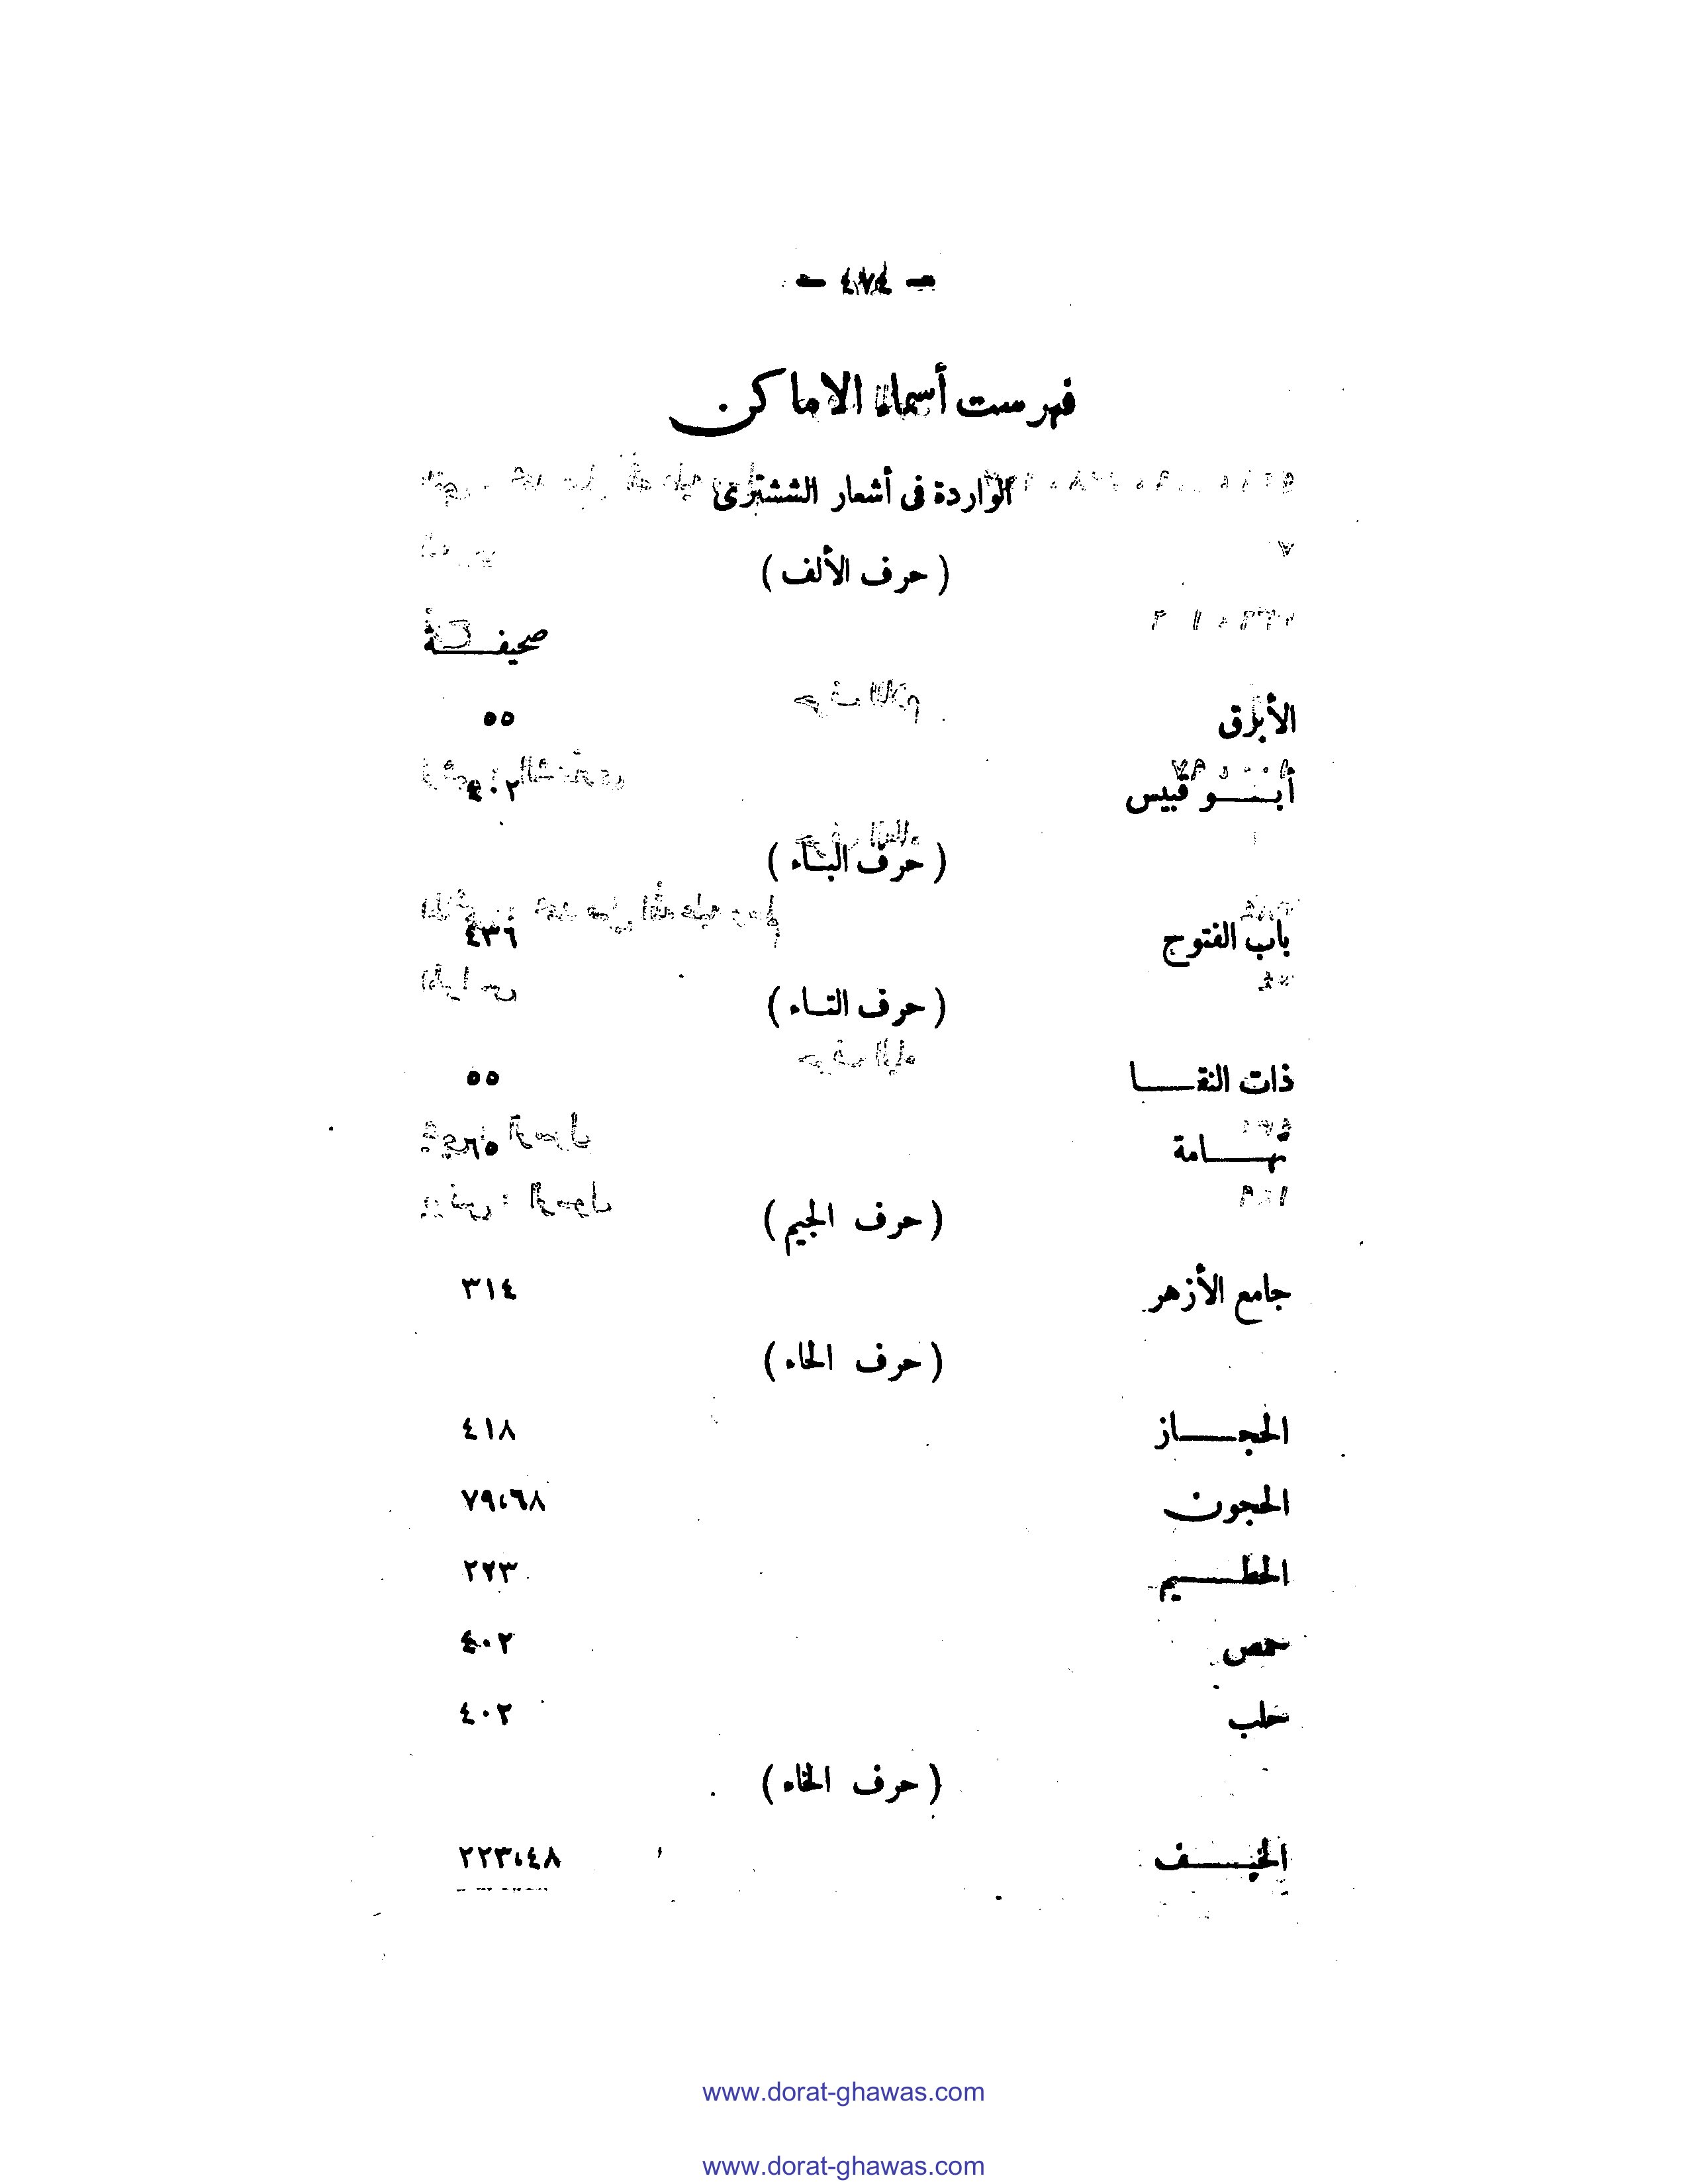 — ٤٧٤ —
فهرست أسماء الاماكن
الواردة فى أشعار الششترى
( حرف الألف )
صحيفـــة
الأبرق ٥٥
أبـــو قبيس ٤٠٢
( حرف البـاء )
باب الفتوح ٤٣٦
( حرف التـاء )
ذات النقـــا ٥٥
تهـــامة
( حرف الجيم )
جامع الأزهر ٣١٤
( حرف الحاء )
الحجـــاز ٤١٨
الحجون ٧٩،٦٨
الحطـــيم ٢٢٣
حمص ٤٠٢
حلب ٤٠٢
( حرف الخاء )
الخيـــف ٢٢٣،٤٨
www.dorat-ghawas.com
www.dorat-ghawas.com